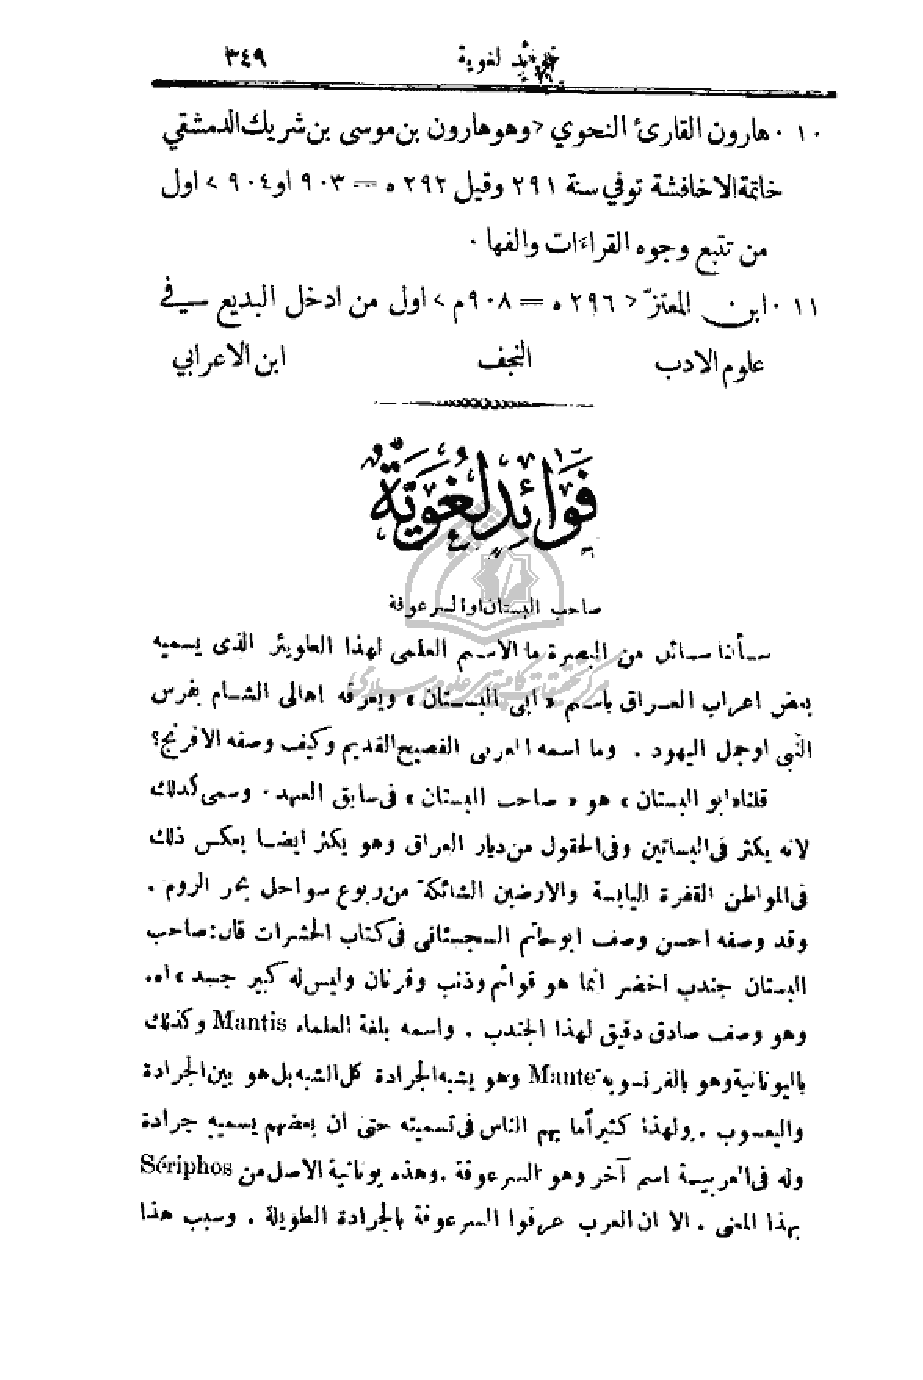 فوائد لغوية ٣٤٩
١٠ . هارون القارئ النحوي < وهو هارون بن موسى بن شريك الدمشقي
خاتمة الاخافشة توفي سنة ٢٩١ وقيل ٢٩٢ ه = ٩٠٣ او ٩٠٤ > اول
من تتبع وجوه القراءات والفها .
١١ . ابن المعتزّ < ٢٩٦ ه = ٩٠٨ م > اول من ادخل البديع في
علوم الادب النجف ابن الاعرابي
فَوَائِد لُغَوِيَّة
صاحب البستان او السرعوفة
سألنا سائل من البصرة ما الاسم العلمى لهذا الطويئر الذى يسميه
بعض اعراب العراق باسم « ابى البستان » ويعرفه اهالى الشام بفرس
النبى او جمل اليهود . وما اسمه العربى الفصيح القديم وكيف وصفه الافرنج؟
قلنا « ابو البستان » هو « صاحب البستان » فى سابق العهد . وسمى كذلك
لانه يكثر فى البساتين وفى الحقول من ديار العراق وهو يكثر ايضا بعكس ذلك
فى المواطن القفرة اليابسة والارضين الشائكة من ربوع سواحل بحر الروم .
وقد وصفه احسن وصف ابو حاتم السجستانى فى كتاب الحشرات قال: صاحب
البستان جندب اخضر انما هو قوائم وذنب وقرنان وليس له كبير جسد » اه.
وهو وصف صادق دقيق لهذا الجندب . واسمه بلغة العلماء Mantis وكذلك
باليونانية وهو بالفرنسوية Mante وهو يشبه الجرادة كل الشبه بل هو بين الجرادة
واليعسوب . ولهذا كثيراً ما يهم الناس فى تسميته حتى ان بعضهم يسميه جرادة
وله فى العربية اسم آخر وهو السرعوفة . وهذه يونانية الاصل من Sériphos
بهذا المعنى . الا ان العرب عرفوا السرعوفة بالجرادة الطويلة . وسبب هذا